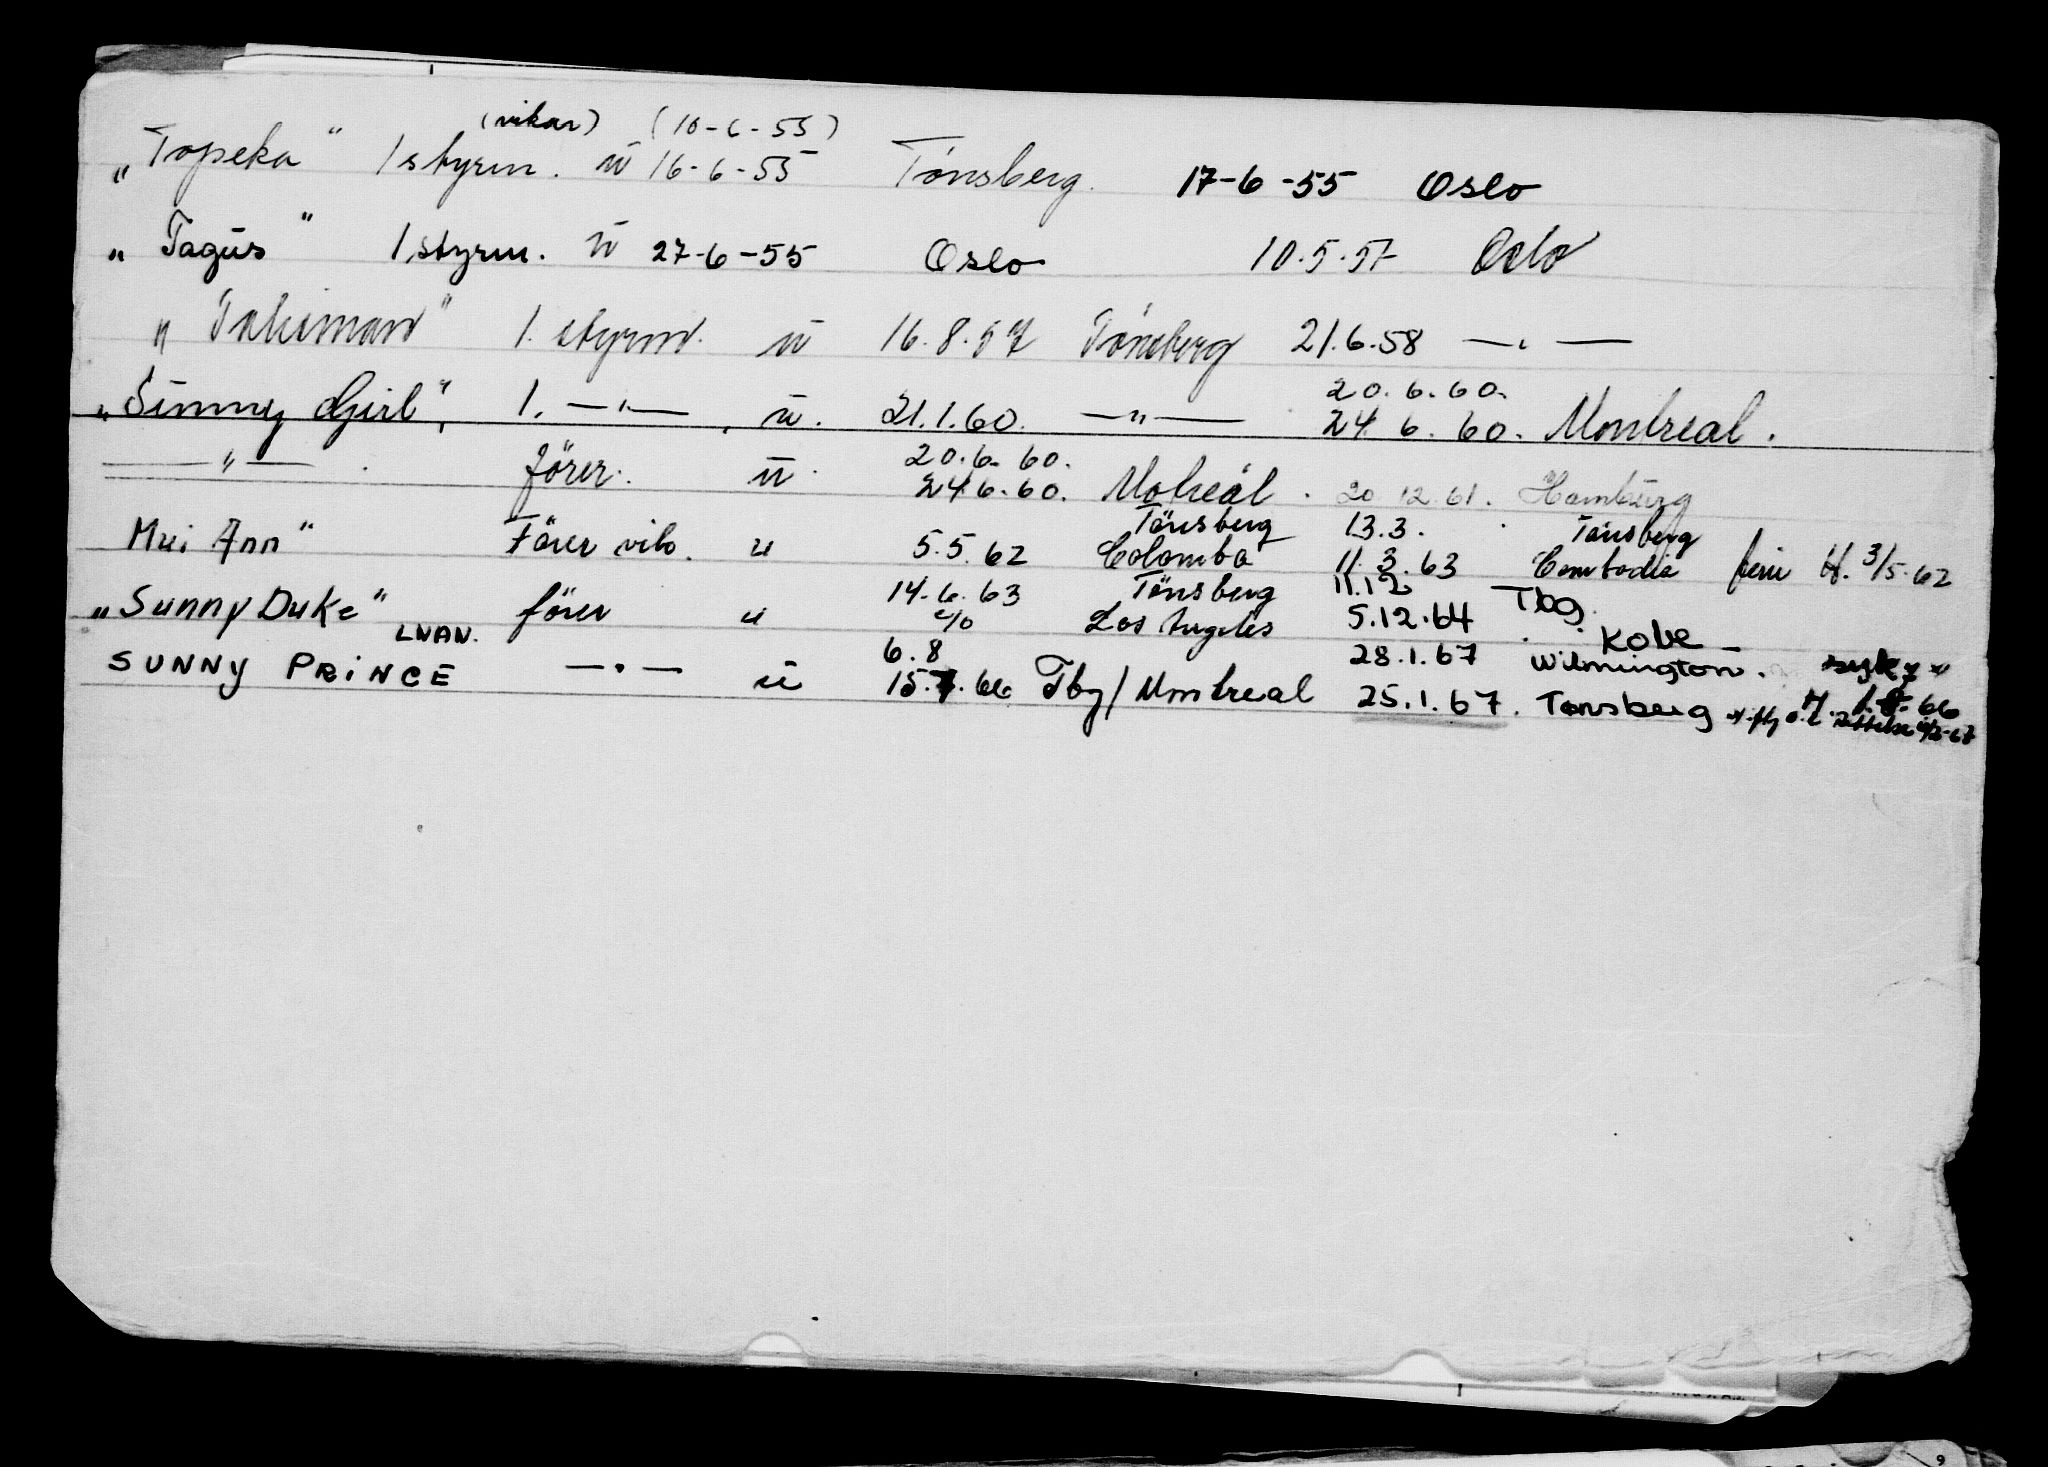 (vikar) (10-6-55)
„Topeka" 1 styrm. ū 16-6-55 Tønsberg. 17-6-55 Oslo
„Tagus" 1 styrm. ū 27-6-55 Oslo 10.5.57 Oslo
„Talisman" 1. styrm. ū 16.8.57 Tönsberg 21.6.58 — " —
20.6.60.
„Sunny Girl", 1. — " —, ū. 21.1.60. — " — 24.6.60. Montreal.
20.6.60.
— " — . förer. ū. 24.6.60. Motreal. 20.12.61. Hamburg
Tönsberg 13.3. Tönsberg
Mui Ann" Förer vik. u 5.5.62 Colombo 11.3.63 Cambodia H. 3/5.62
14.6.63 Tönsberg 11.12 Tbg.
„Sunny Duke" förer u Los Angeles 5.12.64 Kobe
LNAN. 6.8 28.1.67 Wilmington.
SUNNY PRINCE — " — ū 15.7.66 Tbg/Montreal 25.1.67. Tønsberg